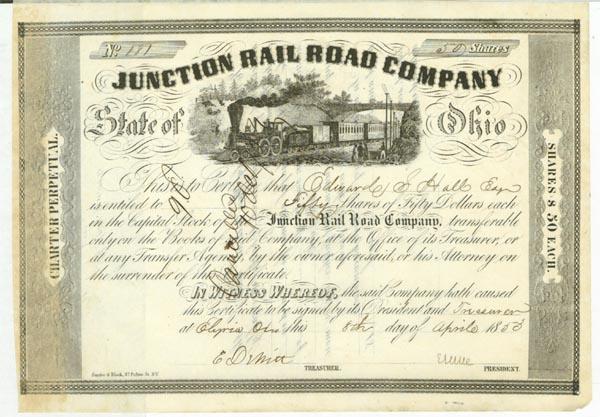 No 181 50 Shares
JUNCTION RAIL ROAD COMPANY
State of Ohio
CHARTER PERPETUAL.
SHARES $50 EACH.
This is to Certify that Edward S Hall Esqr
is entitled to Fifty Shares of Fifty Dollars each
in the Capital Stock of Junction Rail Road Company, transferable
only on the Books of said Company, at the Office of its Treasurer, or
at any Transfer Agency, by the owner aforesaid, or his Attorney on
the surrender of this Certificate.
IN WITNESS WHEREOF, the said Company hath caused
this Certificate to be signed by its President and Treasurer
at Elyria Ohio this 5th day of April 1853
TREASURER. PRESIDENT.